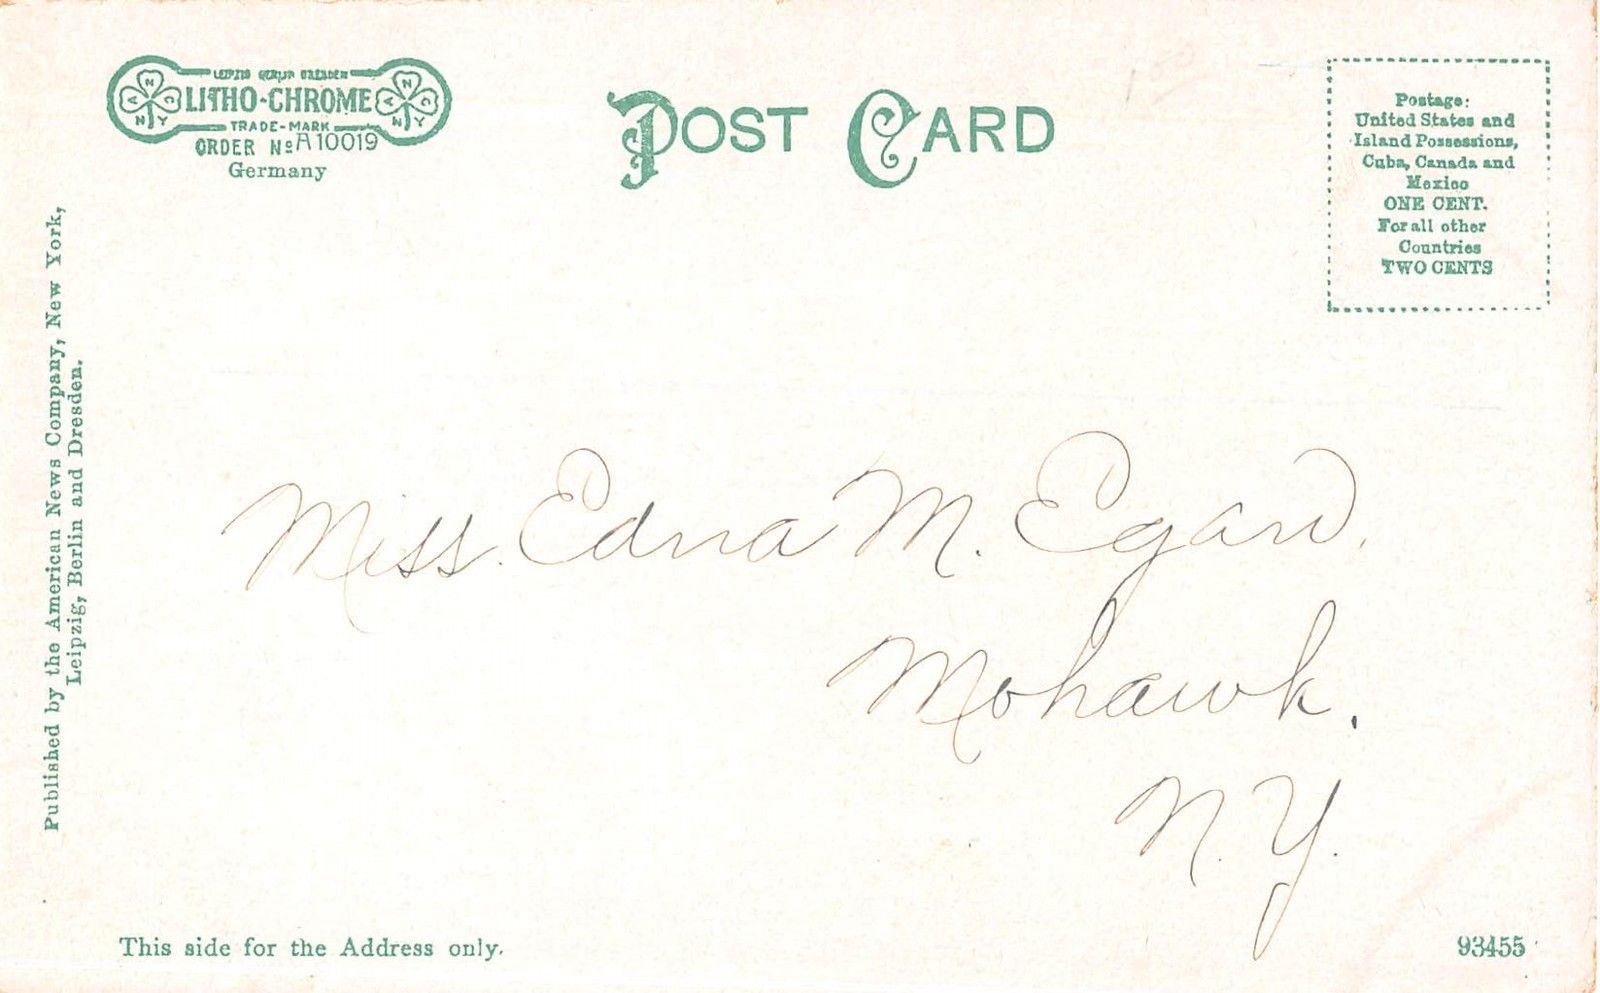 LEIPZIG BERLIN DRESDEN
LITHO-CHROME
TRADE-MARK
ORDER No A 10019
Germany
POST CARD
Postage:
United States and
Island Possessions,
Cuba, Canada and
Mexico
ONE CENT.
For all other
Countries
TWO CENTS
Published by the American News Company, New York,
Leipzig, Berlin and Dresden.
Miss. Edna M. Egan,
Mohawk.
N. Y.
This side for the Address only.
93455